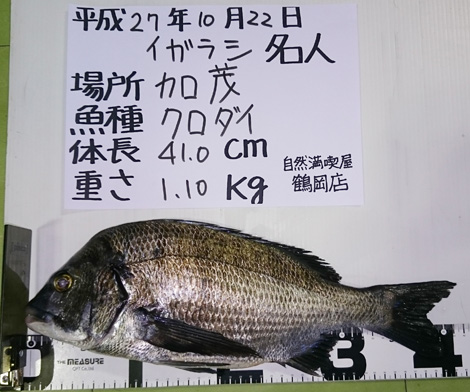 平成27年10月22日
イガラシ 名人
場所 カロ茂
魚種 クロダイ
体長 41.0 cm
重さ 1.10 Kg
自然満喫屋
鶴岡店
THE MEASURE
0 3 4